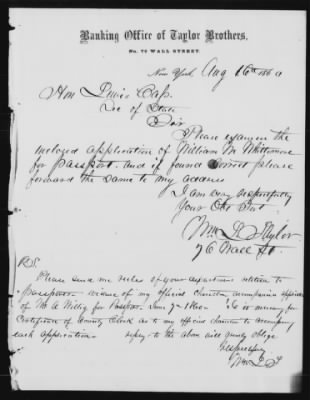 Banking Office of Taylor Brothers,
No. 76 WALL STREET.
New York, Aug 16th 1860
Hon Lewis Cass
Sec of State
Sir
Please examine the
inclosed application of William M Whittemore
for Passport. and if found correct please
forward the same to my address
I am very respectfully
Your Obt Svt
Wm B Taylor
76 Wall St.
P.S.
Please send me rules of your department relative to
Passports. my official Character accompanies application
of Mr A for Passport June 7th 1860. Is it necessary for
Certificate of County Clerk as to my official character to accompany
each application. reply to the above will greatly oblige
respectfully